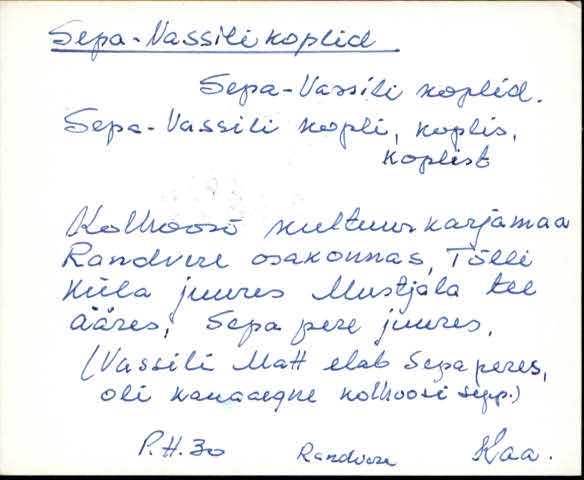 Sepa-Vassili koplid
Sepa-Vassili koplid.
Sepa-Vassili kopli, koplis,
koplist
Kolhoosi kultuurkarjamaa
Randvere osakonnas, Tõlli
küla juures Mustjala tee
ääres, Sepa pere juures.
(Vassili Matt elab Sepa peres,
oli kauaaegne kolhoosi sepp.)
P.H. 30 Randvere Kaa.